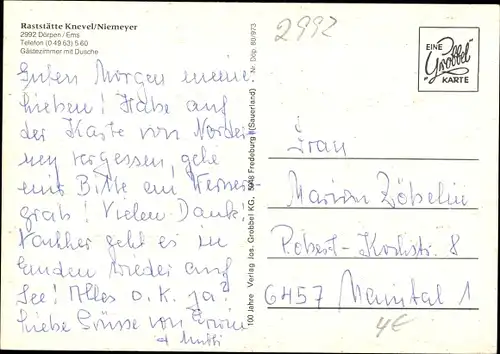 Raststätte Knevel/Niemeyer
2992 Dörpen / Ems
Telefon (0 49 63) 5 60
Gästezimmer mit Dusche
2992
EINE
Grobbel
KARTE
Guten Morgen meine
Lieben! Habe auf
der Karte von Norder-
ney vergessen, gebe
mir Bitte ein
grab! Vielen Dank!
Nachher geht es in
Emden wieder auf
See! Alles o.k. ja?
Liebe Grüsse von Erwin
+ Mutti
100 Jahre Verlag Jos. Grobbel KG, 5948 Fredeburg (Sauerland) · Nr. Döp. 80/973
Frau
Marion Zöbelin
Robert-Kochstr. 8
6457 Maintal 1
4€